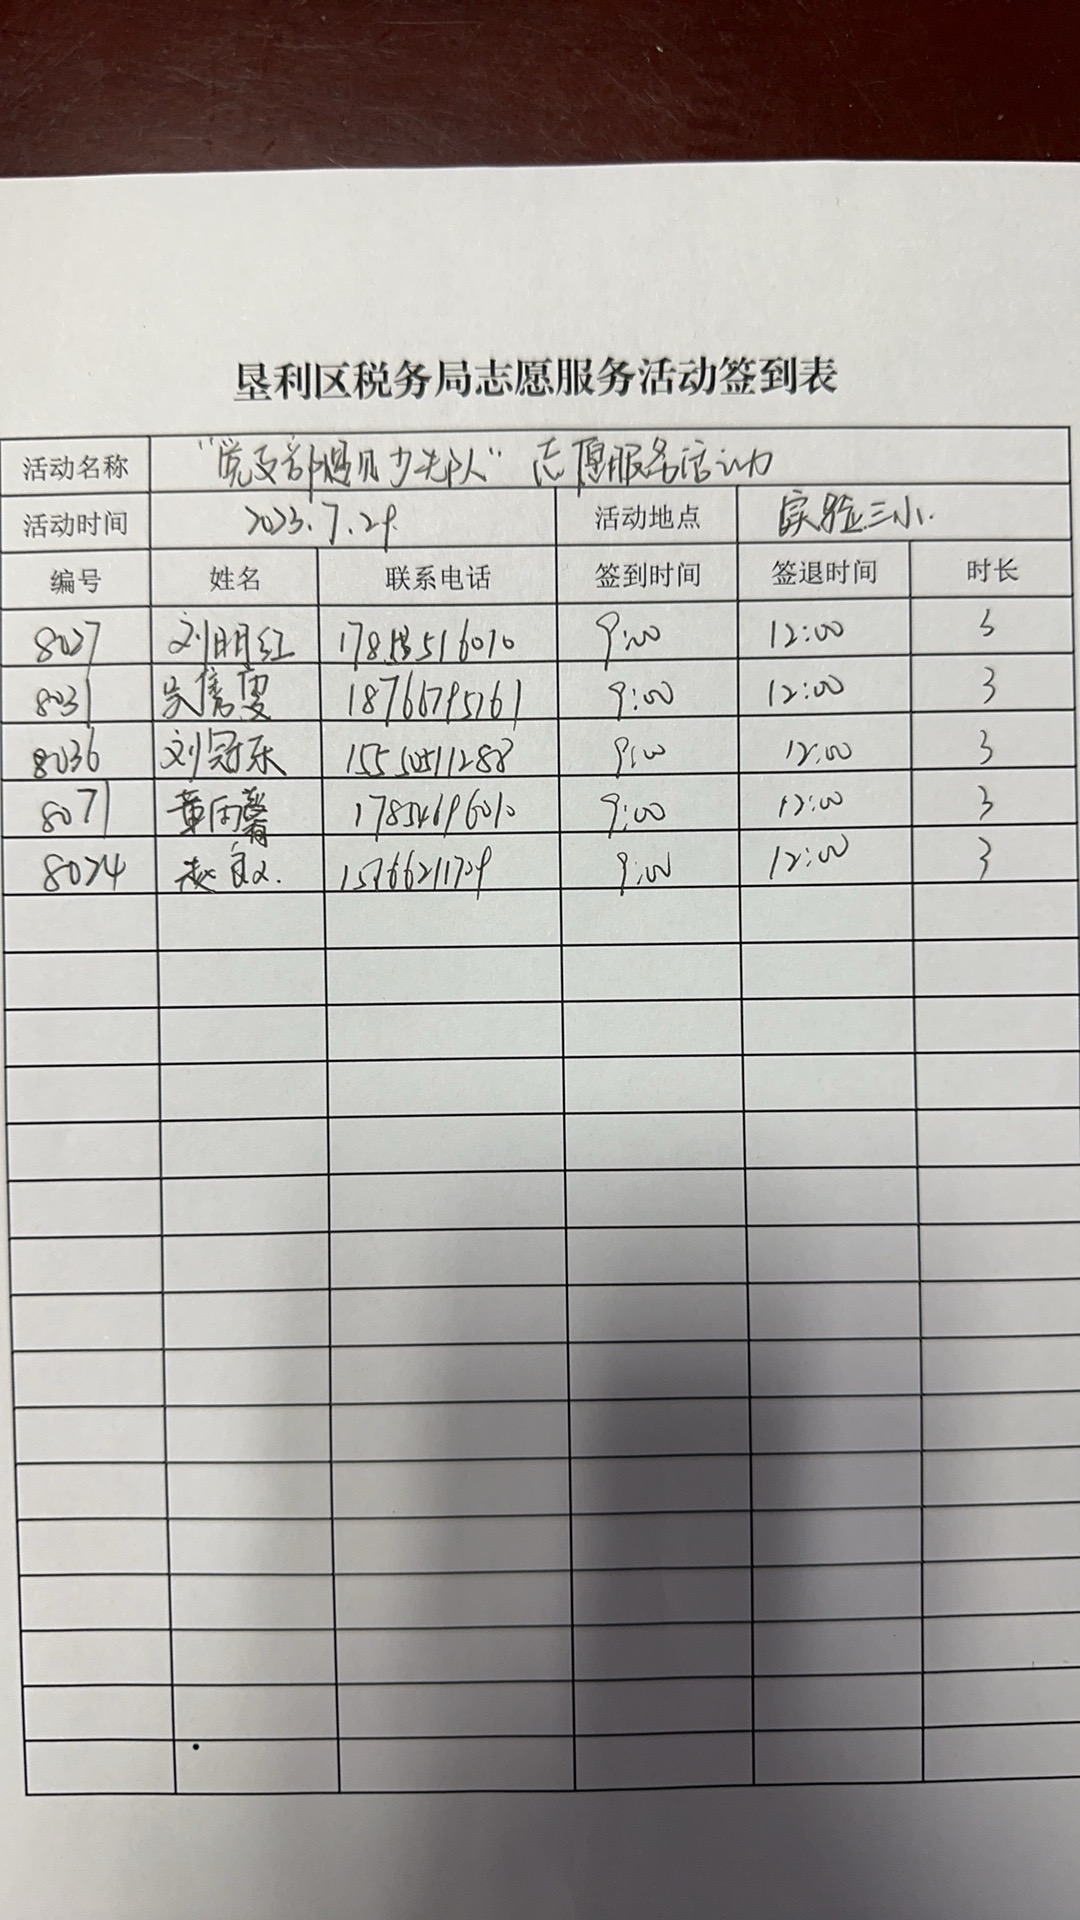 垦利区税务局志愿服务活动签到表
活动名称 "党支部遇见少先队"志愿服务活动
活动时间 2023.7.29. 活动地点 实验三小.
编号 姓名 联系电话 签到时间 签退时间 时长
8027 刘明红 9:00 12:00 3
8031 吴倩雯 18766795761 9:00 12:00 3
8036 刘冠乐 15550511288 9:00 12:00 3
8071 黄雨馨 17854696010 9:00 12:00 3
8024 9:00 12:00 3